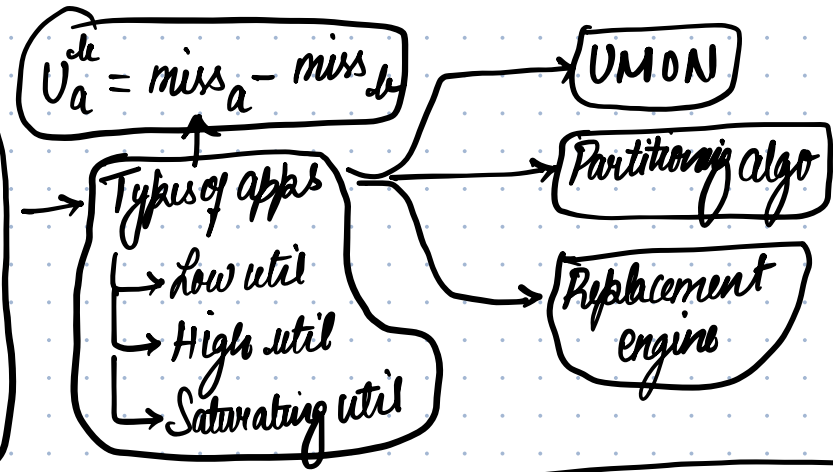 U_a^b = miss_a - miss_b
Types of apps
Low util
High util
Saturating util
UMON
Partitioning algo
Replacement
engine